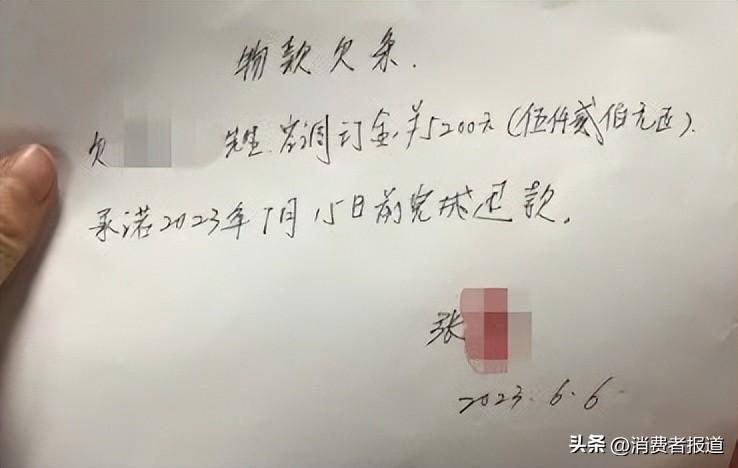 物款欠条.
欠 先生.空调订金.¥5200元(伍仟贰佰元正).
承诺2023年7月15日前完成还款.
张
2023.6.6.
头条 @消费者报道